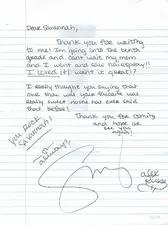 Dear Savannah,
Thank you for writing
to me! I'm going into the tenth
grade and can't wait. my mom
and I went and saw hairspray!!
I loved it! wasn't it great!?
I really thought you saying that
one that was your favorite was
really sweet no one has ever said
that before!
Thank you for coming
and hope to
see you
again!
you Rock
Savannah!
always!
alex